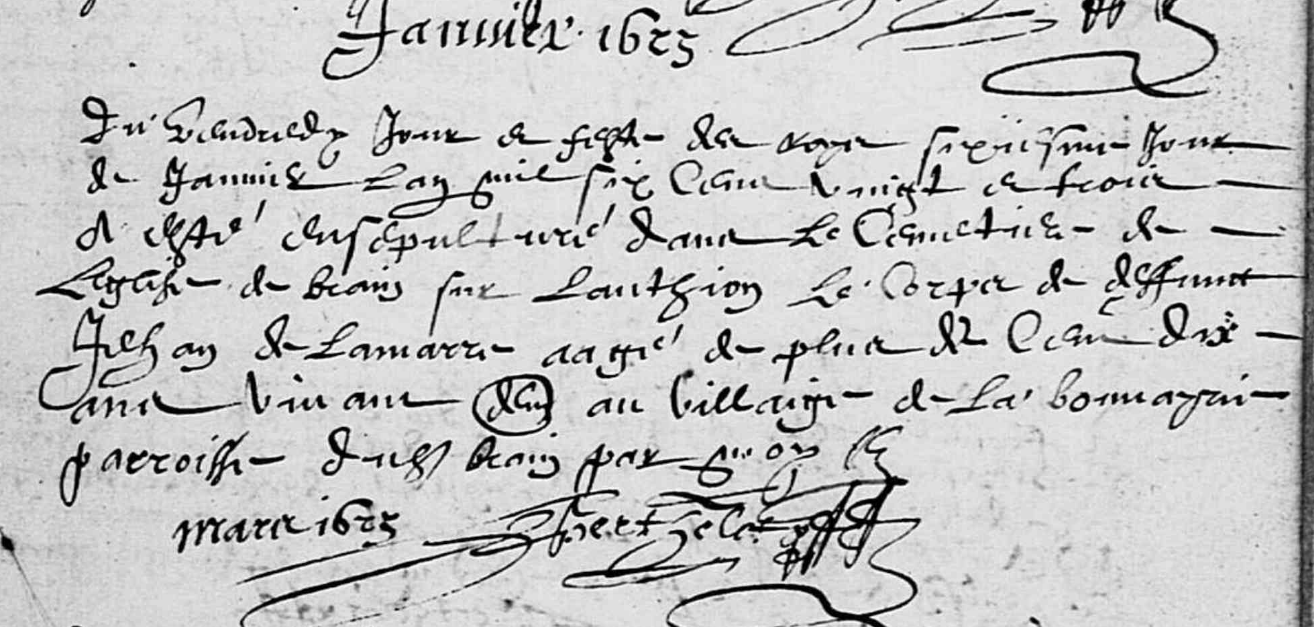 Januier 1623
Du Vendredy Jour et feste des roys sixiesme Jour
de Januier Lan mil six Cens vingt et trois
A esté ensepulturé dans Le Cemetiere de
Leglise de brain sur Lauthion Le Corps de deffunct
Jehan de Lamarre aagé de plus de Cens dix
ans viuant dem au Villaige de La
parroisse dudt brain par moy
mars 1623 Berthelot